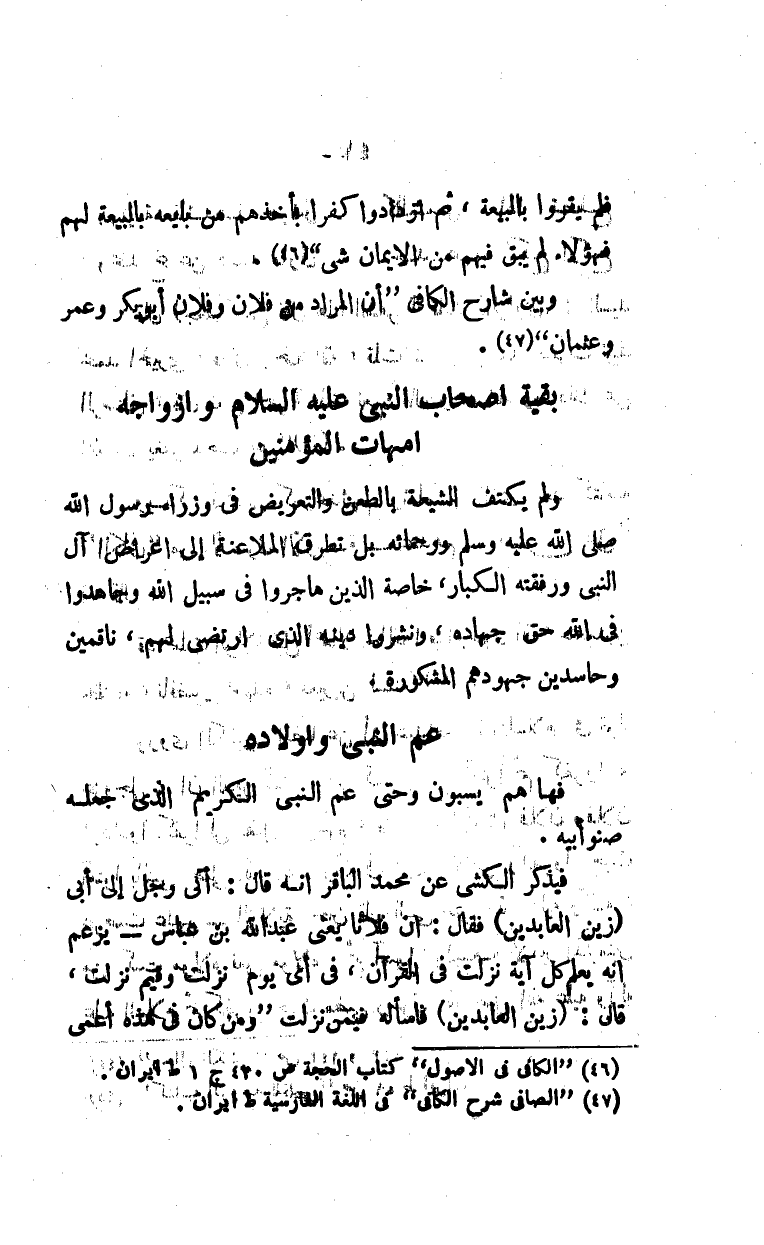 فلم يقروا بالبيعة ، ثم ازدادوا كفرا بأخذهم من بايعه بالبيعة لهم
فهؤلاء لم يبق فيهم من الايمان شى“(٤٦) .
وبين شارح الكافى ”أن المراد من فلان وفلان أبوبكر وعمر
وعثمان“(٤٧) .
بقية اصحاب النبى عليه السلام و ازواجه
امهات المؤمنين
ولم يكتف الشيعة بالطعن والتعريض فى وزراء رسول الله
صلى الله عليه وسلم وورحمائه بل تطرق الملاعنة إلى اعراض آل
النبى ورفقته الكبار، خاصة الذين هاجروا فى سبيل الله وجاهدوا
فى الله حق جهاده ، ونشروا دينه الذى ارتضى لهم ، ناقمين
وحاسدين جهودهم المشكورة ؛
عم النبى واولاده
فها هم يسبون وحتى عم النبى الكريم الذى جعله
صنوأبيه .
فيذكر الكشى عن محمد الباقر انه قال : أتى رجل إلى أبى
(زين العابدين) فقال : ان فلانا يعنى عبدالله بن عباس — يزعم
انه يعلم كل آية نزلت فى القرآن ، فى أى يوم نزلت وفيم نزلت ،
قال : (زين العابدين) فاسأله فيمن نزلت ”ومن كان فى هذه أعمى
(٤٦) ”الكافى فى الاصول“ كتاب الحجة ص ٤٢٠ ج ١ ط ايران .
(٤٧) ”الصافى شرح الكافى“ فى اللغة الفارسية ط ايران .